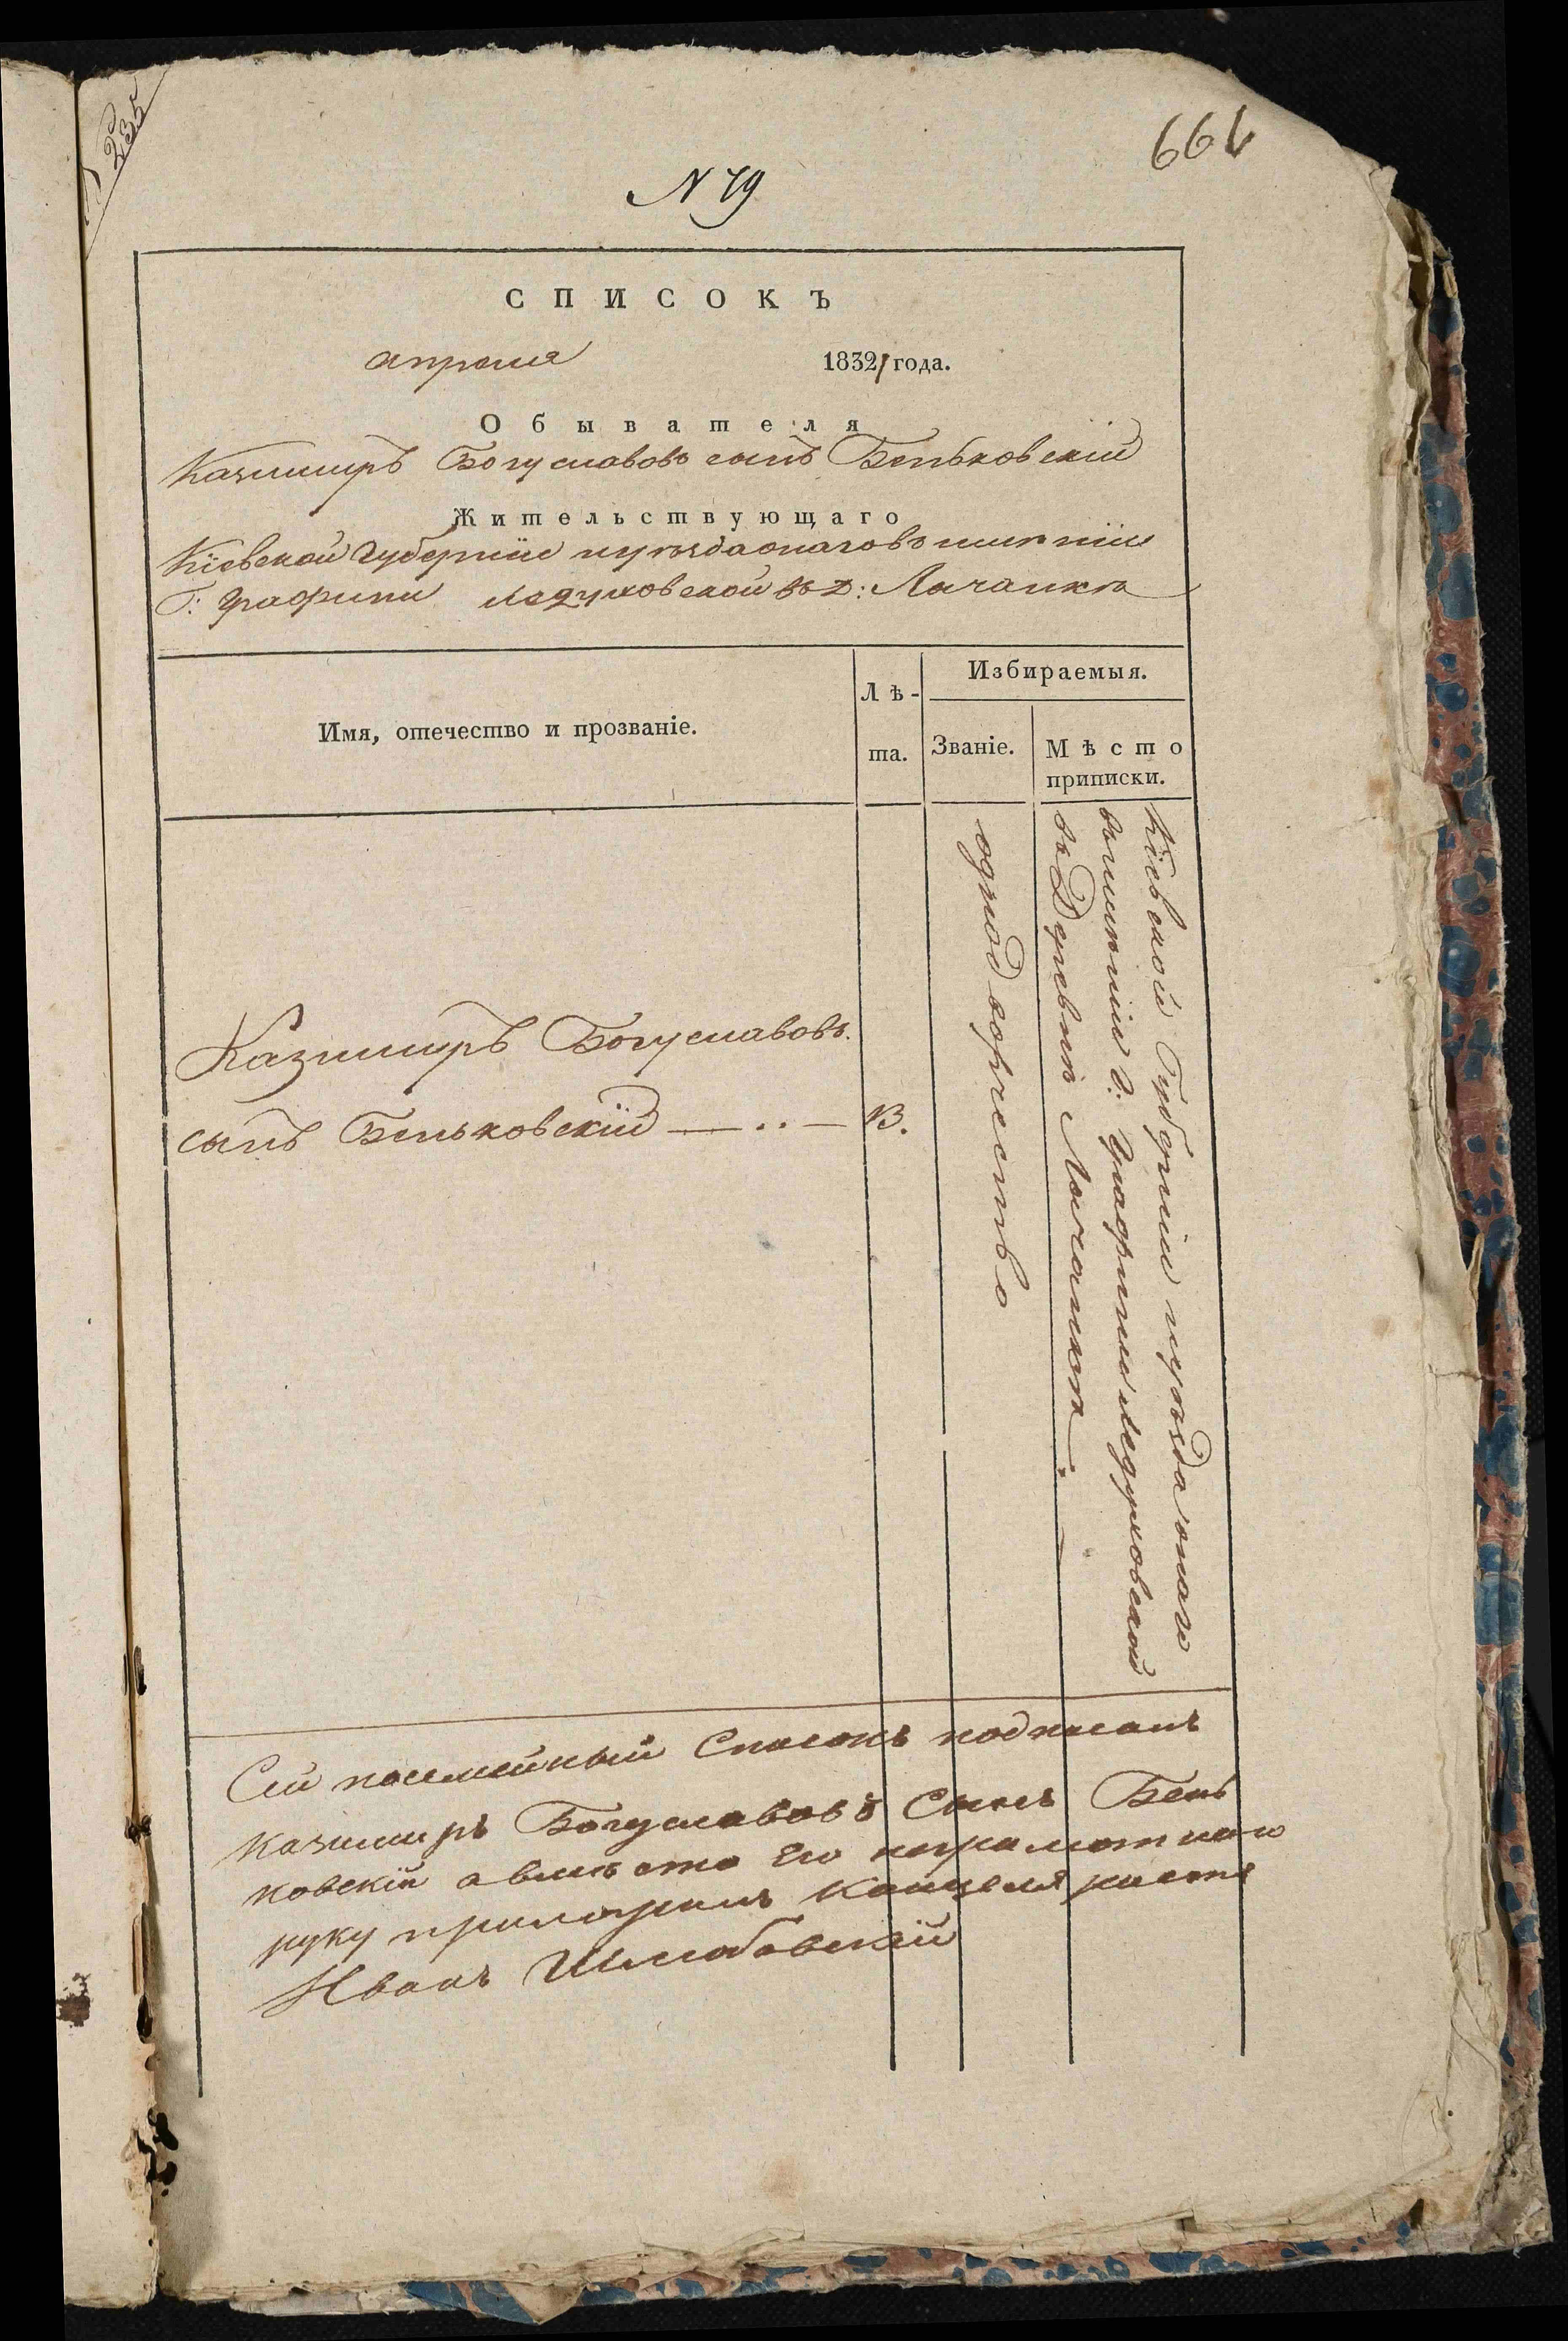 235
661
N 79
СПИСОКЪ
апреля 1832 года.
Обывателя
Казимиръ Богуславовъ сынъ Беньковскій
Жительствующаго
Кіевской Губерніи иуезда онагов имѣніи
Г: Графини Ледуховской въ д: Лычанкѣ
Имя, отечество и прозваніе.
Лѣ-
та.
Избираемыя.
Званіе.
Мѣсто
приписки.
Казимиръ Богуславовъ
сынъ Беньковскій — .. — 13.
однодворчество
Кіевской Губерніи иуѣзда онаго
вимѣніи г: Графини Ледуховской
въ Деревнѣ Лычанкѣ
Сій посемейный Списокъ подписалъ
Казимиръ Богуславовъ Сынъ Бень
ковскій авмѣсто Его неграмотнаго
руку приложилъ Канцеляристъ
Иванъ